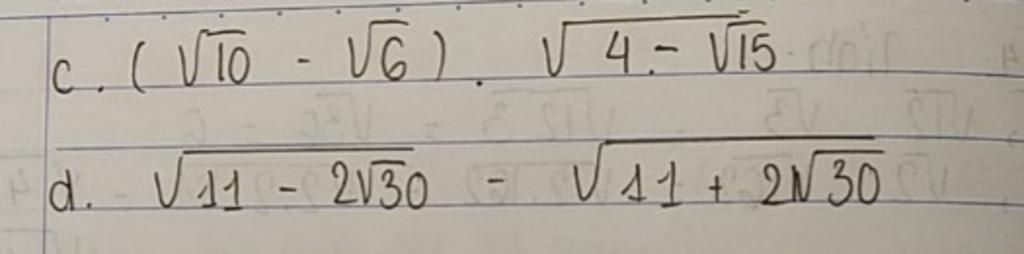 c. (√10 - √6) . √(4 - √15)
d. √(11 - 2√30) - √(11 + 2√30)